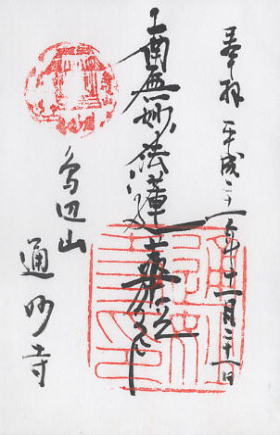 奉拝 平成二十一年十一月二十一日
南無妙法蓮華経
鳥辺山
通妙寺